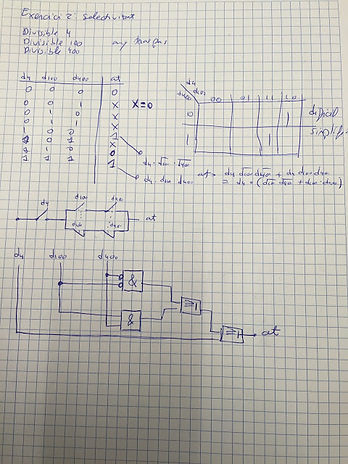 Exercici 2: selectivitat
Divisible 4
Divisible 100 any traspàs
Divisible 400
d4 d100 d400 at
0 0 0 0
0 0 1 X X=0
0 1 0 X
0 1 1 X
1 0 0 1
1 0 1 X
1 1 0 0
1 1 1 1
d4
d100
d400 00 01 11 10
0 1
1 1
difícil
simplificar
d4 · d̅1̅0̅0̅ · d̅4̅0̅0̅
d4 · d100 · d400
at = d4 d̅1̅0̅0̅ d̅4̅0̅0̅ + d4 d100 d400
= d4 · (d̅1̅0̅0̅ d̅4̅0̅0̅ + d100 · d400)
d4 d100 d400
d100 d400 at
d4 d100 d400
&
≥1
&
≥1 at